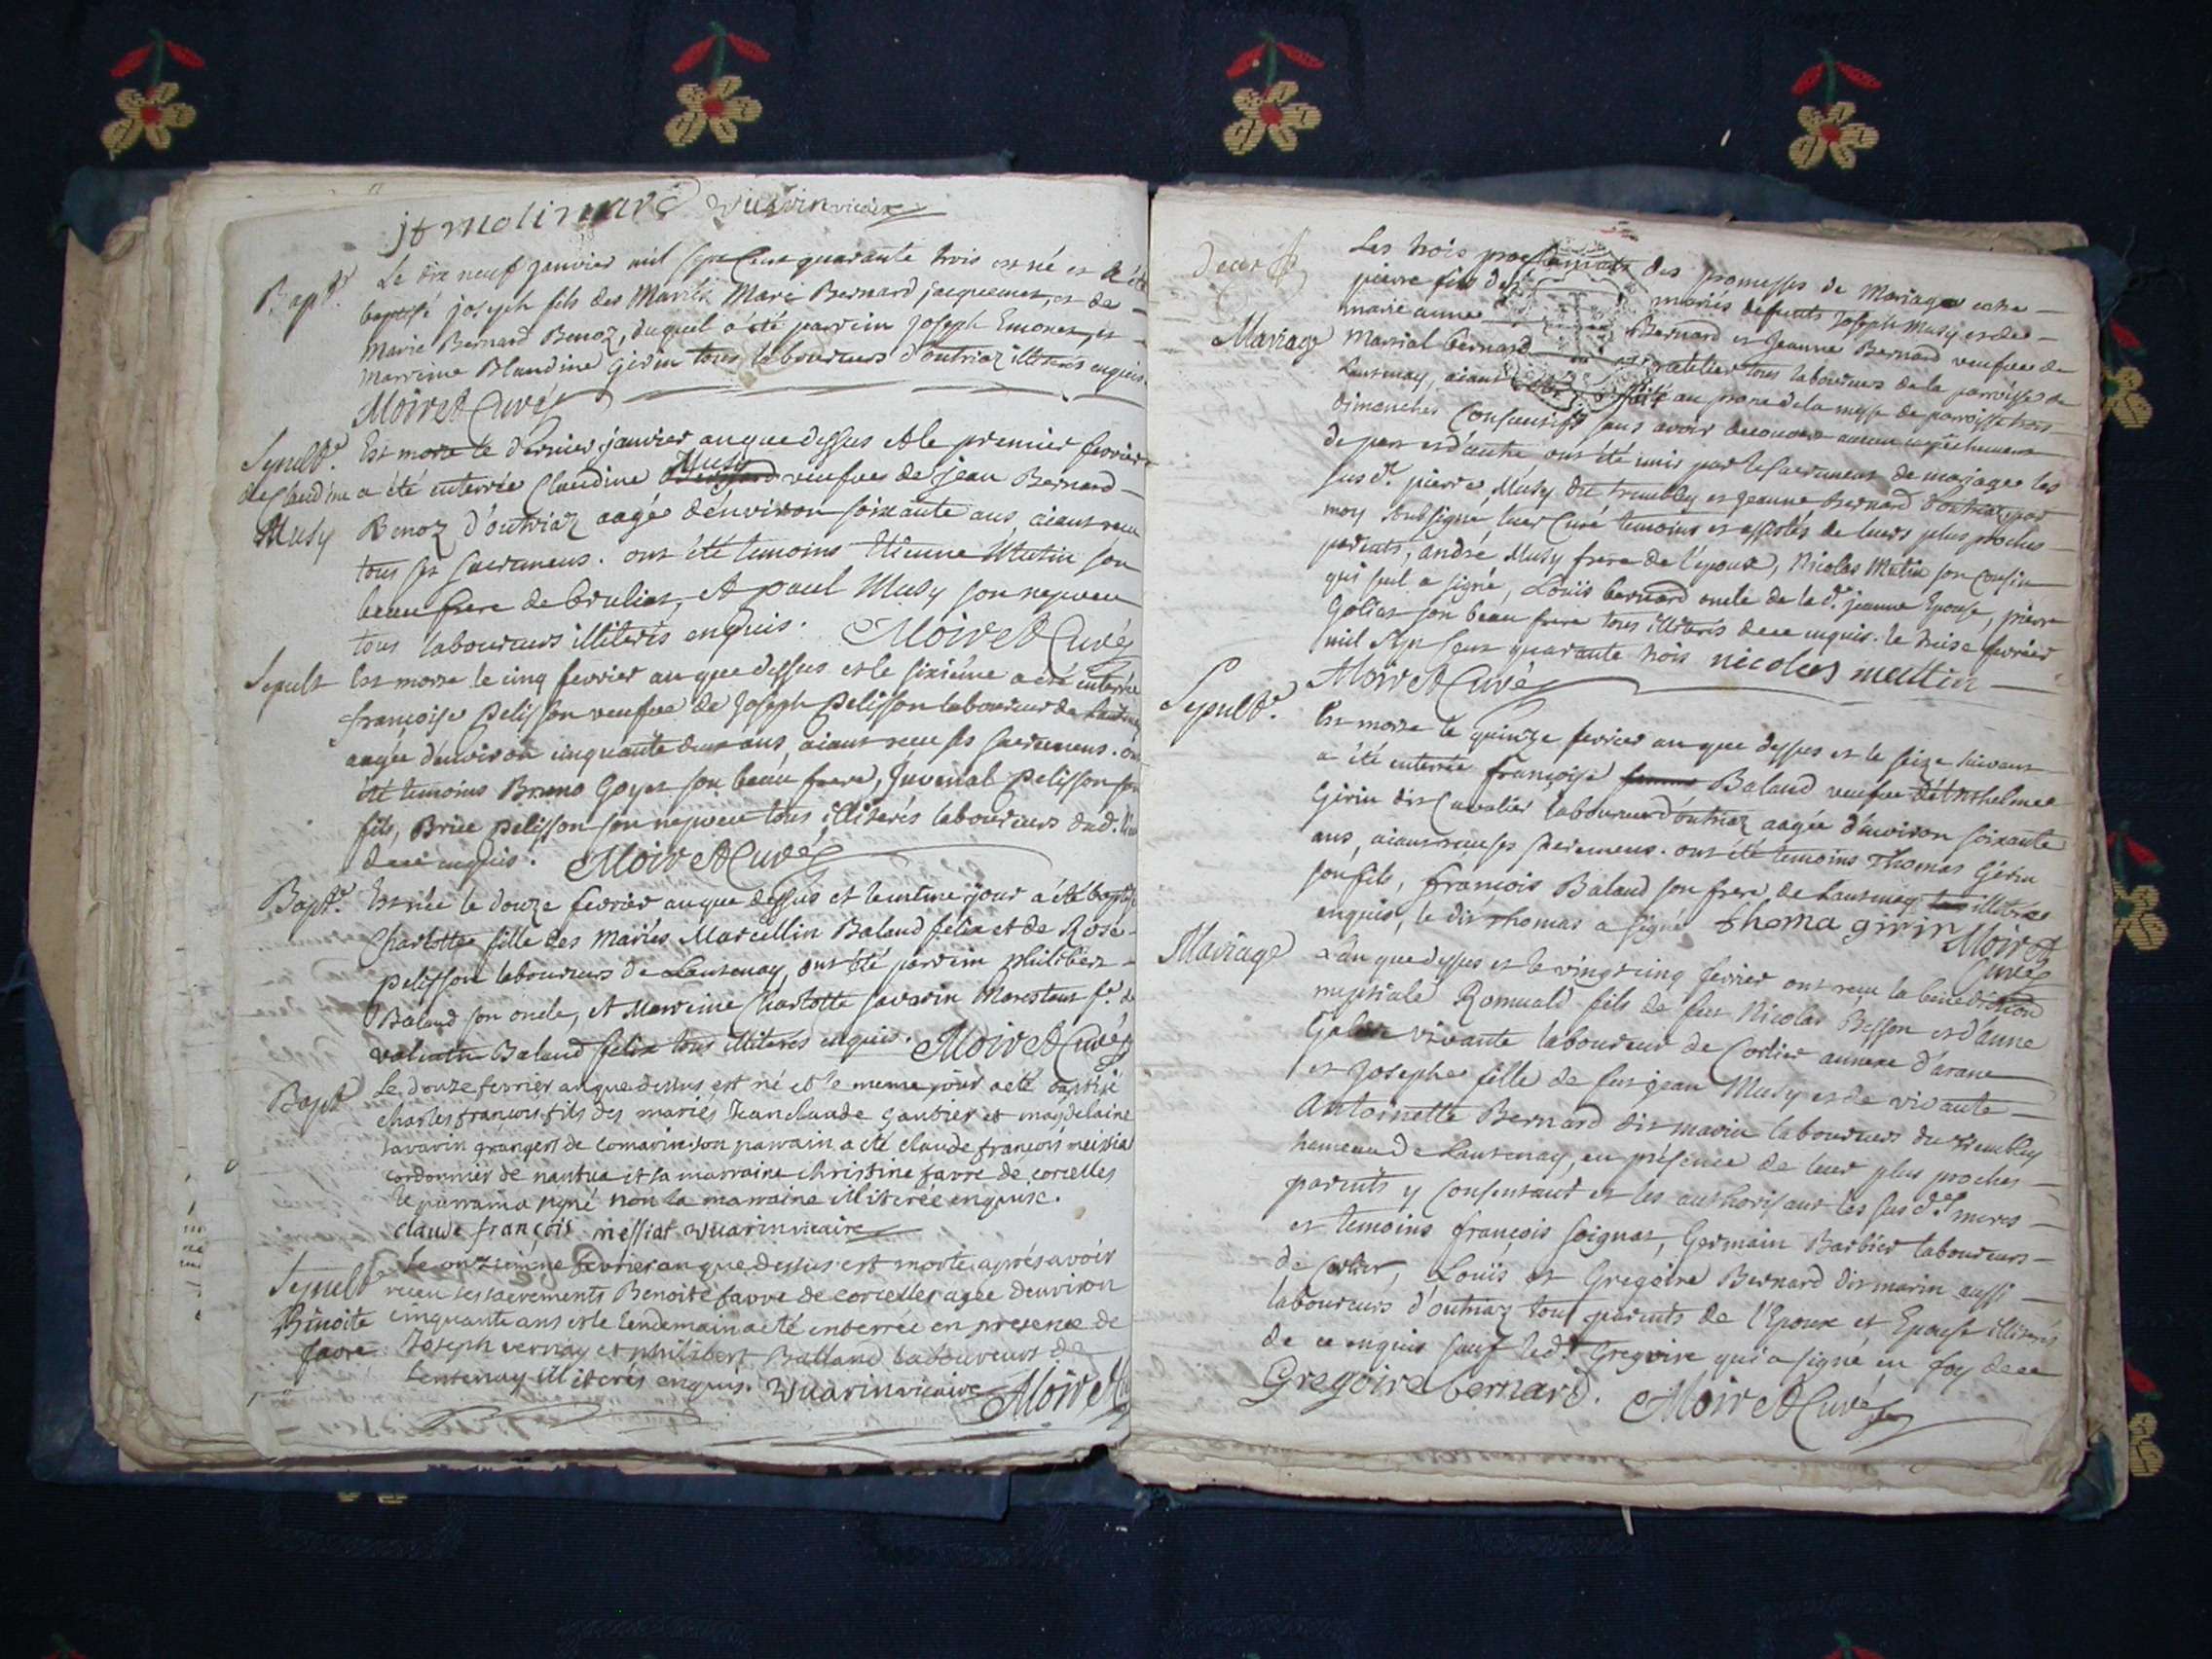 jf molimard Vuarin vicaire
Bapt.e Le dix neuf janvier mil sept cent quarante trois est né et a été
baptisé joseph fils des Mariés Marie Bernard jacquemet, et de
Marie Bernard Benoz, duquel a été parrein joseph Emonet, et
Marreine Blandine Girin tous laboureurs d'outriaz illiterés enquis.
Moiret Curé
Sepult.e Est morte le dernier janvier an que dessus et le premier fevrier
de Claudine a été enterrée Claudine Musy veufve de jean Bernard
Musy Benoz d'outriaz aagée d'environ soixante ans, aiant receu
tous ses sacremens. ont été temoins Etienne Mutin son
beau frere de brulier, et paul Musy son nepveu
tous laboureurs illiterés enquis. Moiret Curé
Sepult Est morte le cinq fevrier an que dessus et le sixiéme a été enterrée
françoise Pelisson veufve de Joseph Pelisson laboureur de
aagée d'environ cinquante deux ans, aiant receu ses sacremens. ont
été temoins Bruno Goyet son beau frere, Juvenal Pelisson son
fils, Brice Pelisson son nepveu tous illiterés laboureurs dud. lieu
de ce enquis. Moiret Curé
Bapt.e Est née le douze fevrier an que dessus et le même jour a été baptisée
Charlotte fille des Mariés Marcellin Baland felix et de Rose
Pelisson laboureurs de Lantenay, ont été parrein philibert
Baland son oncle, et Marreine Charlotte savarin Marestant f.e de
valentin Baland felix tous illiterés enquis. Moiret Curé
Bapt Le douze fevrier an que dessus est né et le meme jour a eté baptisé
charles françois fils des mariés Jean claude gautier et magdelaine
savarin grangers de comarin. son parrain a eté claude françois messiat
cordonnier de nantua et sa marraine christine favre de corcelles
le parrain a signé non la marraine illiterée enquise.
claude françois messiat Vuarin vicaire
Sepult.e Le onzieme fevrier an que dessus est morte aprés avoir
receu ses sacrements Benoite favre de corcelles agée denviron
Binoite cinquante ans et le lendemain a eté enterrée en presence de
favre Joseph vernay et philibert Balland laboureurs de
Lentenay illiterés enquis. Vuarin vicaire Moiret
Les trois proclamats des promesses de Mariage entre
pierre fils des mariés defunts Joseph Musy et de
marie anne Bernard et Jeanne Bernard veufve de
Mariage Martial bernard ratelier tous laboureurs de la parroisse de
Lantenay, aiant été fait au prone de la messe de parroisse trois
dimanches consecutifs sans avoir decouvert aucun empêchement
de part et d'autre ont été unis par le sacrement de mariage les
susd.ts pierre Musy dit trembley et jeanne Bernard d'outriaz par
moy soubsigné leur Curé temoins et assistés de leurs plus proches
parents, andré Musy frere de l'epoux, Nicolas Metin son cousin
qui seul a signé, Louis bernard oncle de lad.e jeanne Epouse, pierre
Goliat son beau frere tous illiterés de ce enquis. le treise fevrier
mil sept cent quarante trois nicolas mettin
Moiret Curé
Sepult.e Est morte le quinze fevrier an que dessus et le seize suivant
a été enterrée françoise Baland veufve d'Anthelme
Girin dit Cavalier laboureur d'outriaz aagée d'environ soixante
ans, aiant receu ses sacremens. ont été temoins Thomas Girin
son fils, françois Baland son frere de Lantenay illiteré
enquis, le dit Thomas a signé thoma girin Moiret
Curé
Mariage L'an que dessus et le vingt cinq fevrier ont receu la benediction
nuptiale Romuald fils de feu Nicolas Besson et d'anne
vivante laboureur de Corlier annexe d'arane
et Josephe fille de feu jean Musy et de vivante
Antoinette Bernard dit marin laboureurs du trembley
hameau de Lantenay, en presence de leur plus proches
parents y consentant et les authorisant les susd.es meres
et temoins françois soignat, Germain Barbier laboureurs
de Corlier, Louis et Gregoire Bernard dit marin aussi
laboureurs d'outriaz tous parents de l'Epoux et Epouse illiterés
de ce enquis sauf led.t Gregoire qui a signé en foy de ce
Gregoire bernard. Moiret Curé